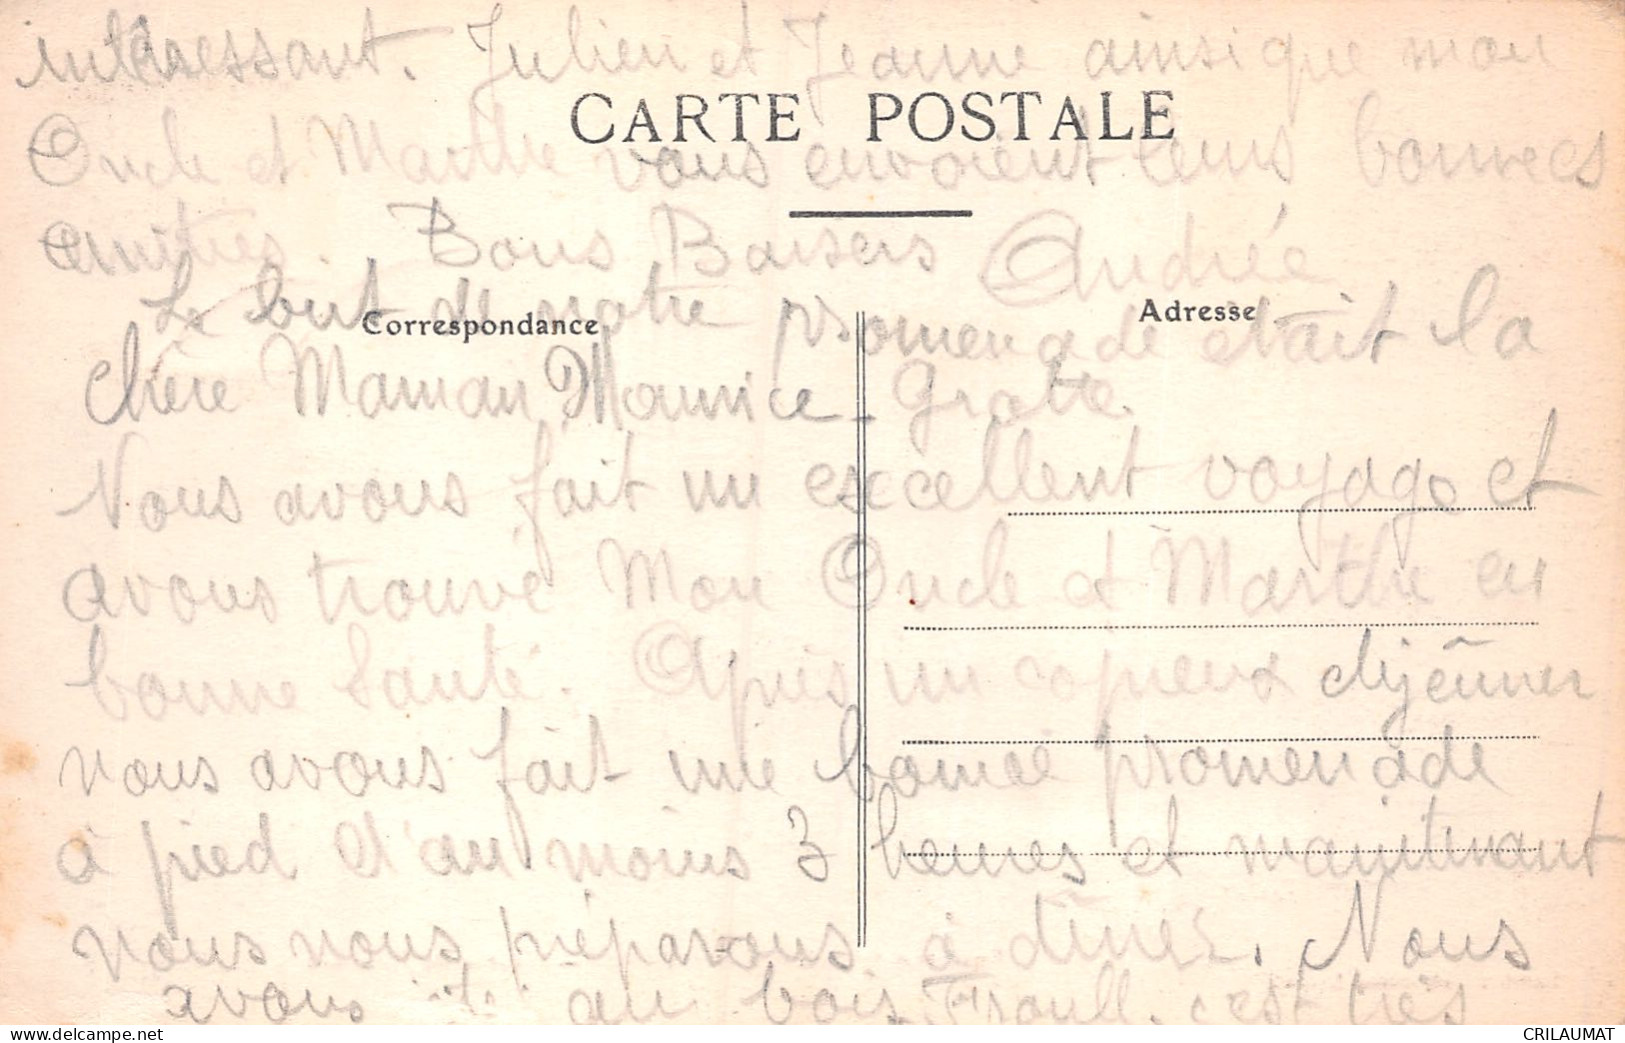 intéressant. Julien et Jeanne ainsi que mon
CARTE POSTALE
Oncle et Marthe vous envoient leurs bonnes
amitiés. Bons Baisers Andrée
Le but de notre promenade était la
Correspondance
Adresse
chère Maman Maurice - grotte
Nous avons fait un excellent voyage et
avons trouvé Mon Oncle et Marthe en
bonne santé. Après un copieux déjeûner
nous avons fait une bonne promenade
à pied d'au moins 3 heures et maintenant
nous nous préparons à dîner. Nous
avons été au bois c'est très
CRILAUMAT